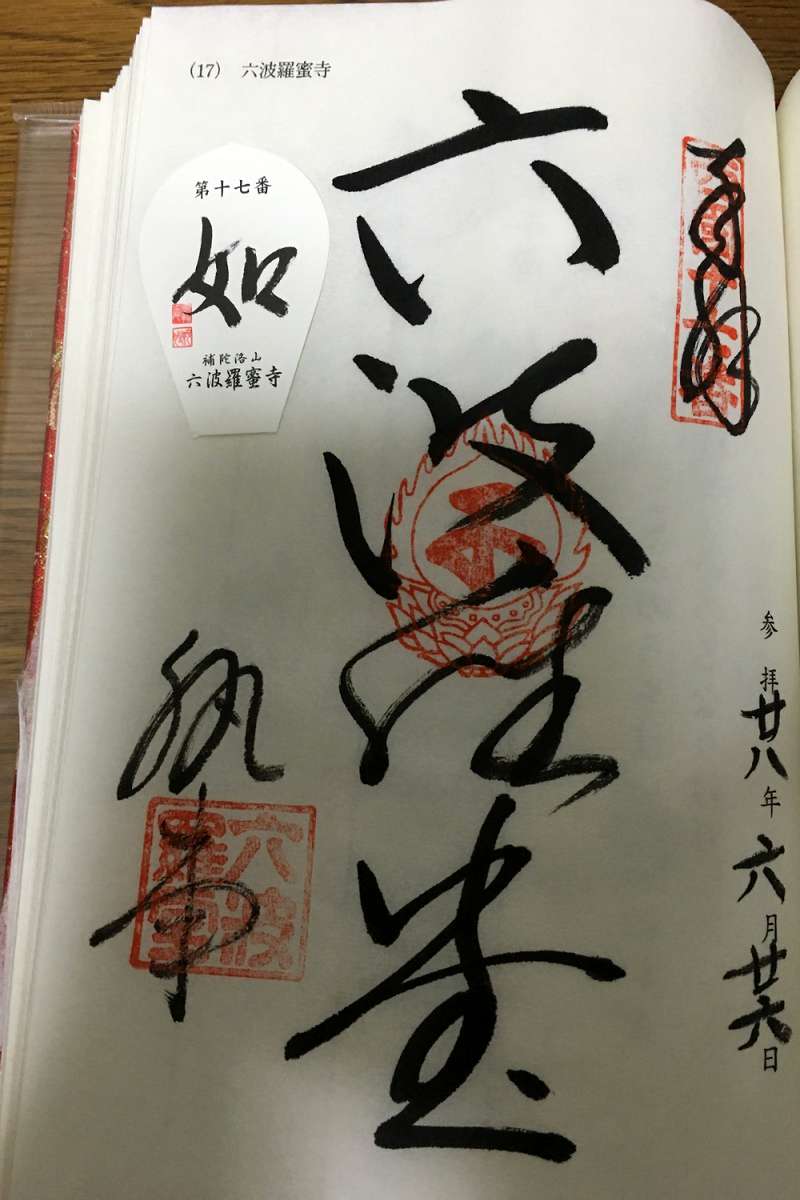 (17) 六波羅蜜寺
奉拝
参拝廿八年六月廿六日
六波羅蜜
執事
六波羅蜜寺
第十七番
如
補陀洛山
六波羅蜜寺